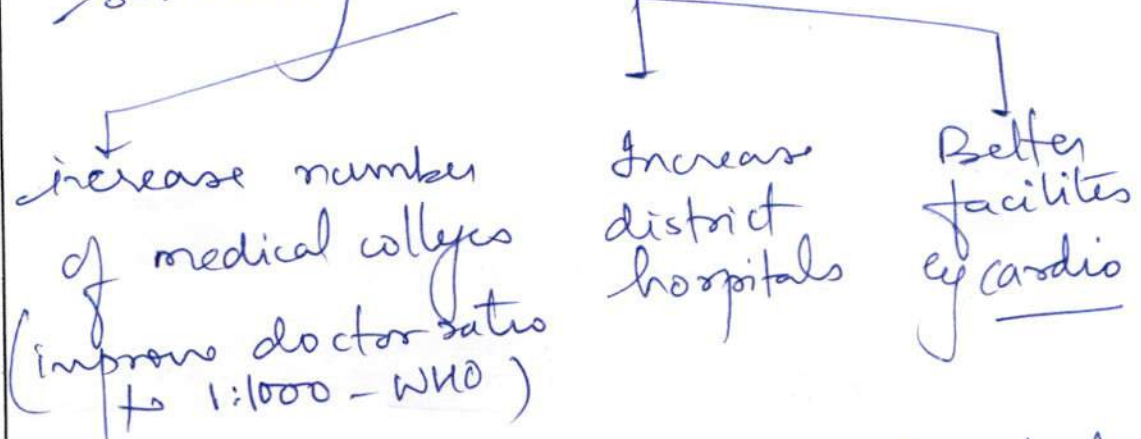 increase number
of medical colleges
(improve doctor ratio
to 1:1000 - WHO)
Increase
district
hospitals
Better
facilites
eg cardio